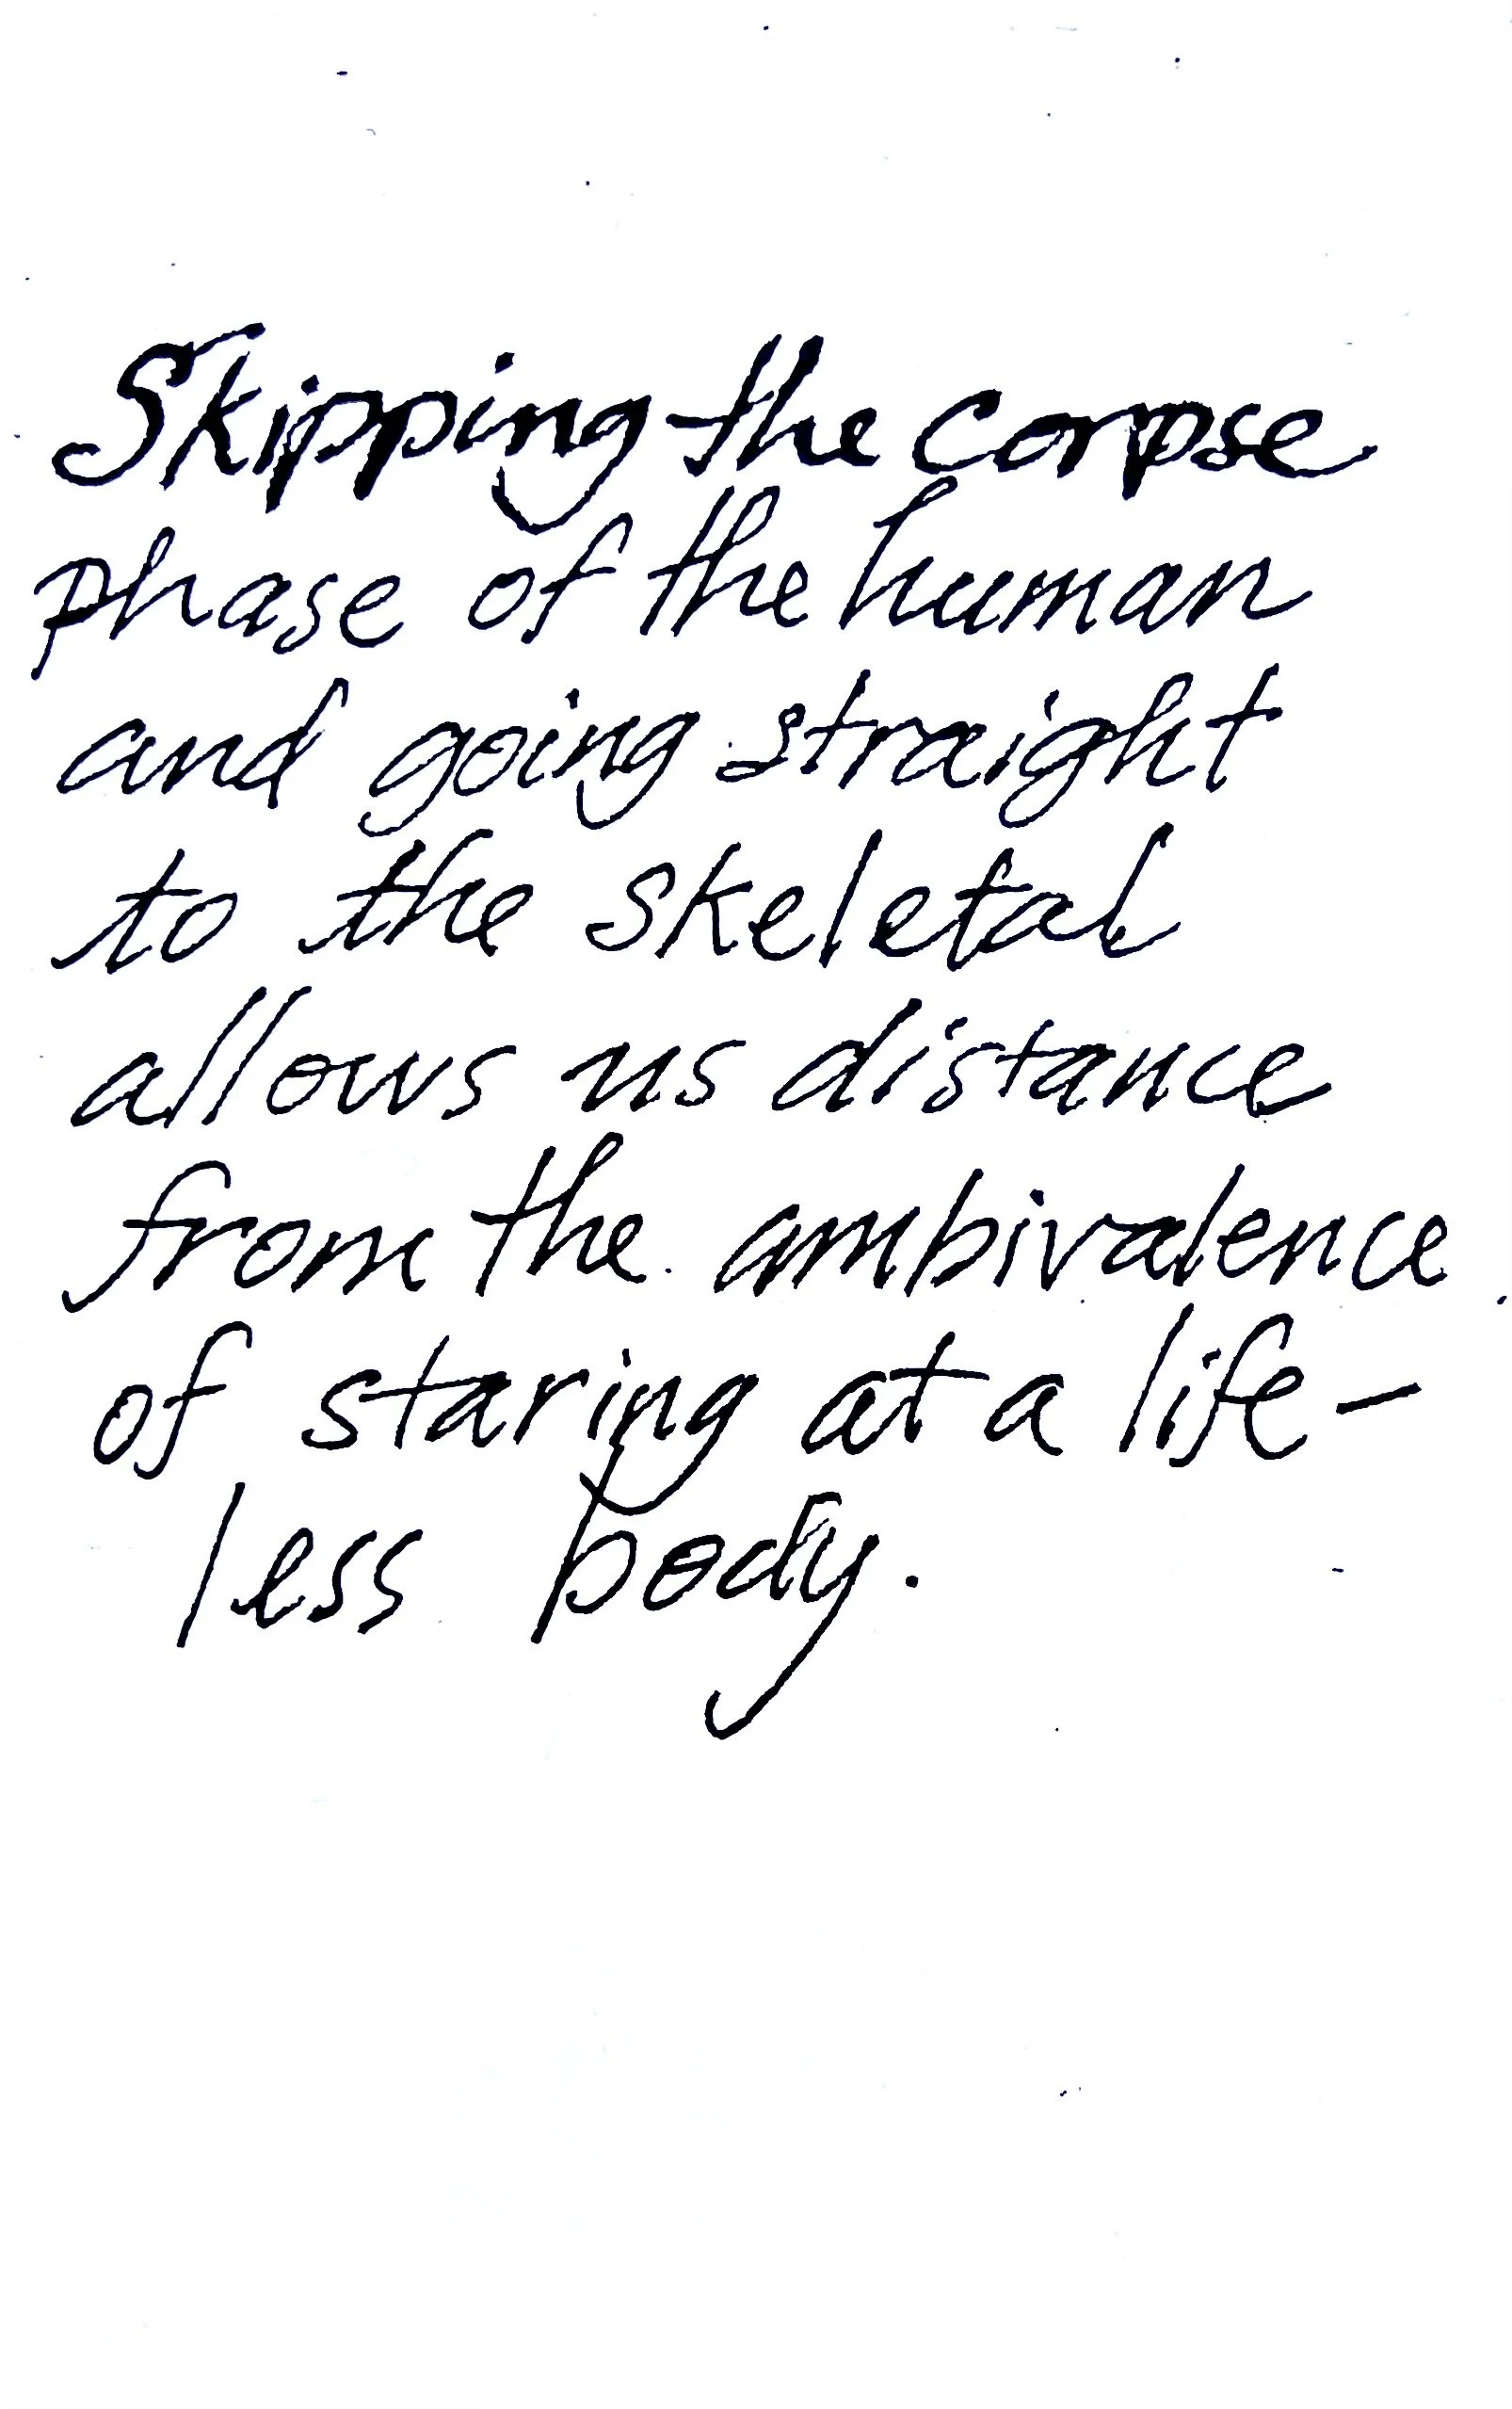 Skipping the corpse
phase of the human
and going straight
to the skeletal
allows us distance
from the ambivalence
of staring at a life-
less body.